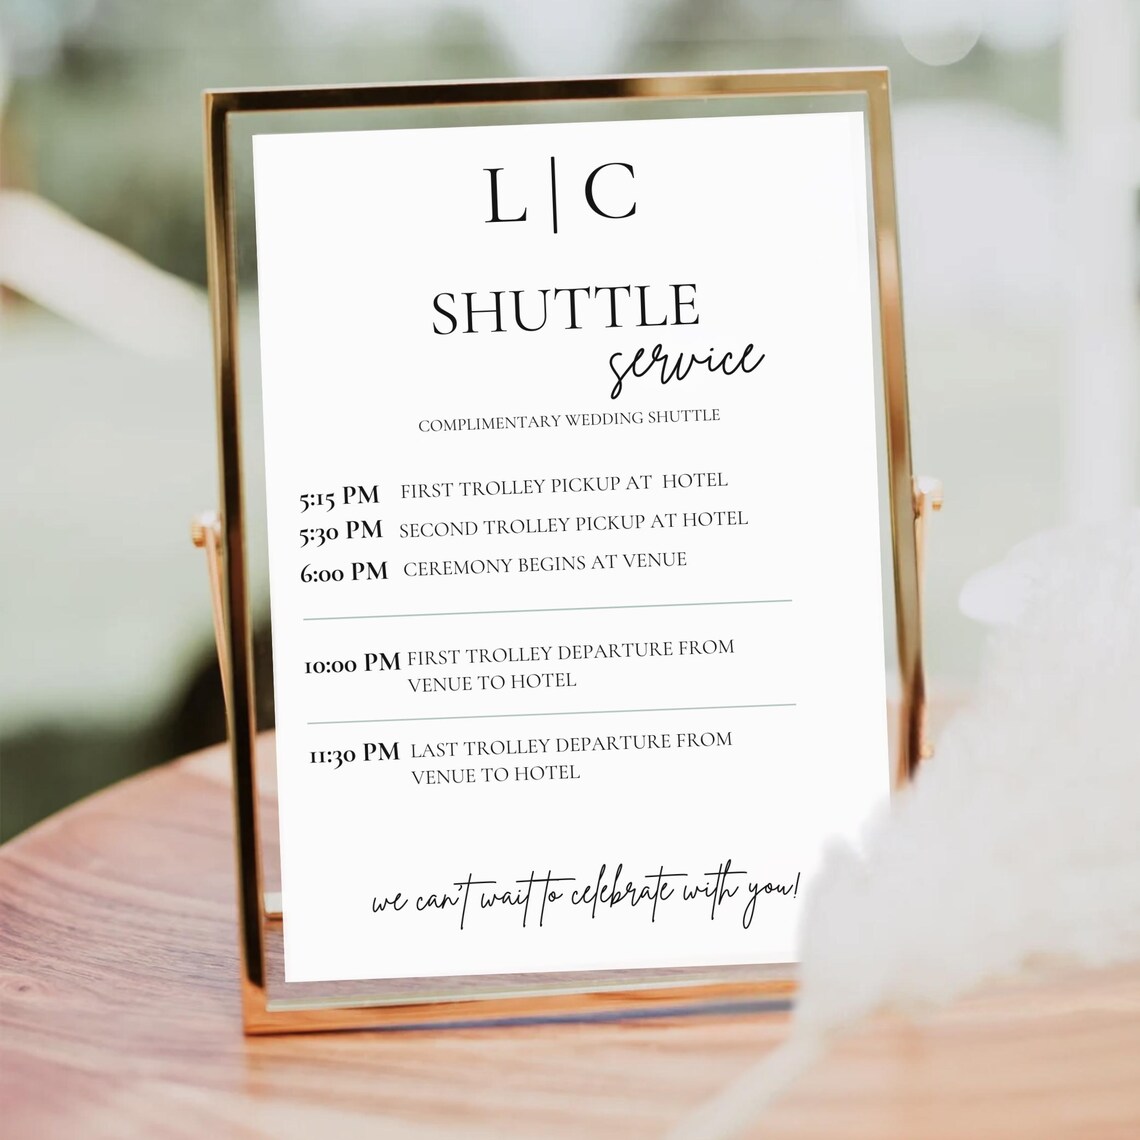 L | C
SHUTTLE
service
COMPLIMENTARY WEDDING SHUTTLE
5:15 PM FIRST TROLLEY PICKUP AT HOTEL
5:30 PM SECOND TROLLEY PICKUP AT HOTEL
6:00 PM CEREMONY BEGINS AT VENUE
10:00 PM FIRST TROLLEY DEPARTURE FROM
VENUE TO HOTEL
11:30 PM LAST TROLLEY DEPARTURE FROM
VENUE TO HOTEL
we can't wait to celebrate with you!